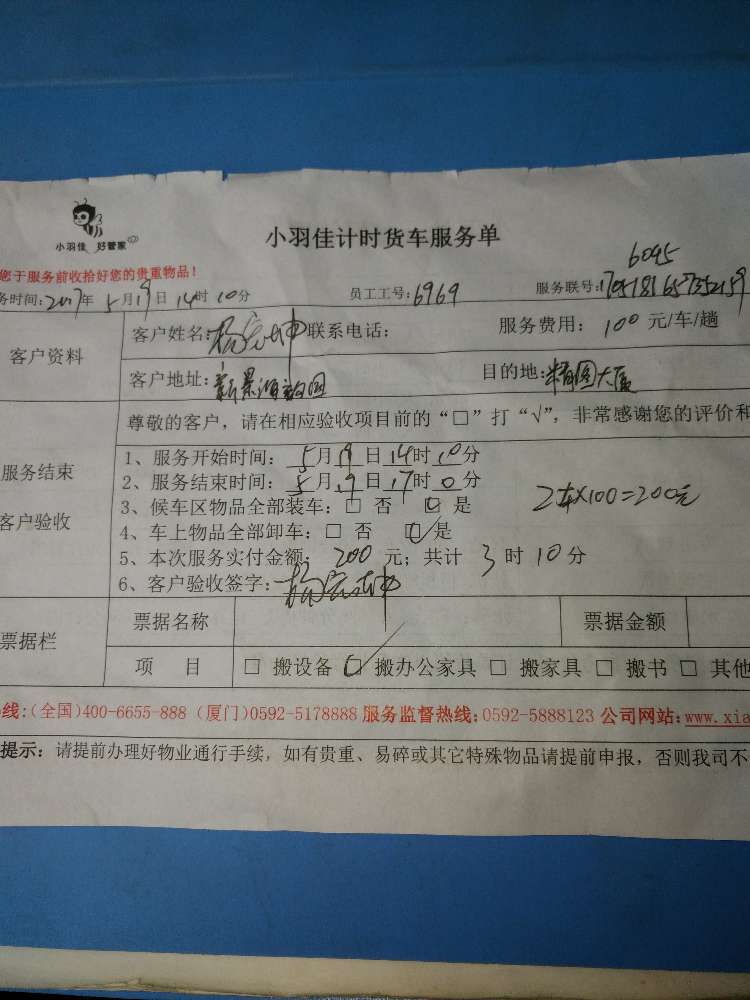 小羽佳 好管家
小羽佳计时货车服务单
您于服务前收拾好您的贵重物品！
6095
务时间：2017年 5月19日 14时 10分 员工工号：6969 服务联号：
客户资料
客户姓名： 联系电话： 服务费用： 100 元/车/趟
客户地址： 目的地：精图大厦
尊敬的客户，请在相应验收项目前的“□”打“√”，非常感谢您的评价和
服务结束
客户验收
1、服务开始时间： 5月19日14时10分
2、服务结束时间： 5月19日17时0分
3、候车区物品全部装车：□ 否 □ 是
2车X100=200元
4、车上物品全部卸车：□ 否 ☑是
5、本次服务实付金额： 200 元；共计 3 时 10 分
6、客户验收签字：
票据栏
票据名称 票据金额
项 目 □ 搬设备 ☑ 搬办公家具 □ 搬家具 □ 搬书 □ 其他
线：(全国)400-6655-888 (厦门)0592-5178888 服务监督热线：0592-5888123 公司网站：www.xia
提示：请提前办理好物业通行手续，如有贵重、易碎或其它特殊物品请提前申报，否则我司不